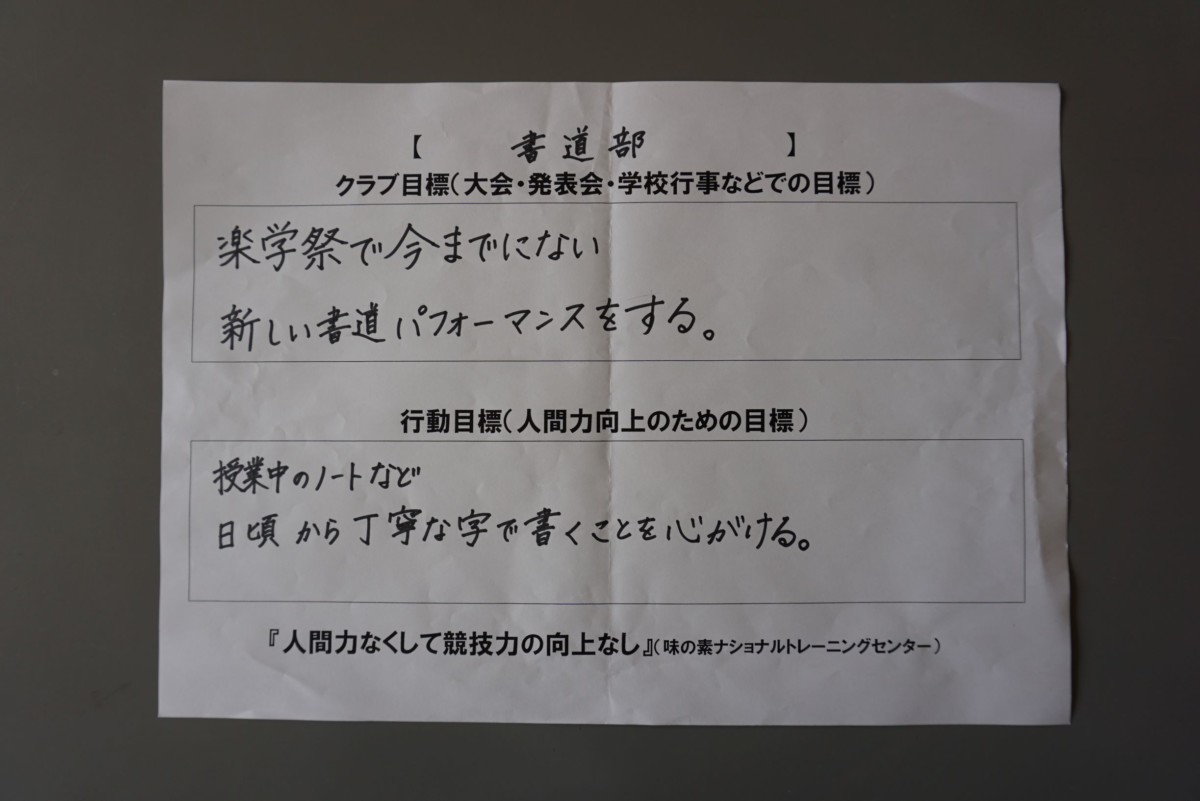 【 書道部 】
クラブ目標(大会・発表会・学校行事などでの目標)
楽学祭で今までにない
新しい書道パフォーマンスをする。
行動目標(人間力向上のための目標)
授業中のノートなど
日頃から丁寧な字で書くことを心がける。
『人間力なくして競技力の向上なし』(味の素ナショナルトレーニングセンター)